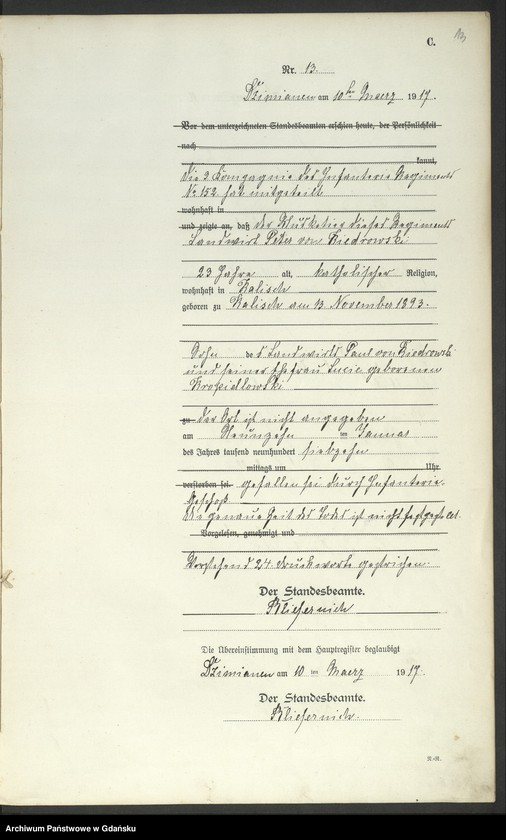 13
C.
Nr. 13.
Dzimianen am 10ten Maerz 1917.
Vor dem unterzeichneten Standesbeamten erschien heute, der Persönlichkeit
nach
kannt,
die 2 Compagnie des Infanterie Regiments
No 152 hat mitgeteilt
wohnhaft in
und zeigte an, daß der Musketier dieses Regiments
Landwirt Peter von Kiedrowski
23 Jahre alt, katholischer Religion,
wohnhaft in Kalisch
geboren zu Kalisch am 13 November 1893.
Sohn des Landwirts Paul von Kiedrowski
und seiner Ehefrau Lucie geborenen
Kropidlowski
zu der Ort ist nicht angegeben
am Neunzehn ten Januar
des Jahres tausend neunhundert siebzehn
mittags um Uhr
verstorben sei. gefallen sei durch Infanterie
Geschoß
Die genaue Zeit des Todes ist nicht festgestellt.
Vorgelesen, genehmigt und
Vorstehend 24 Druckworte gestrichen.
Der Standesbeamte.
Die Übereinstimmung mit dem Hauptregister beglaubigt
Dzimianen am 10 ten Maerz 1917.
Der Standesbeamte.
Archiwum Państwowe w Gdańsku